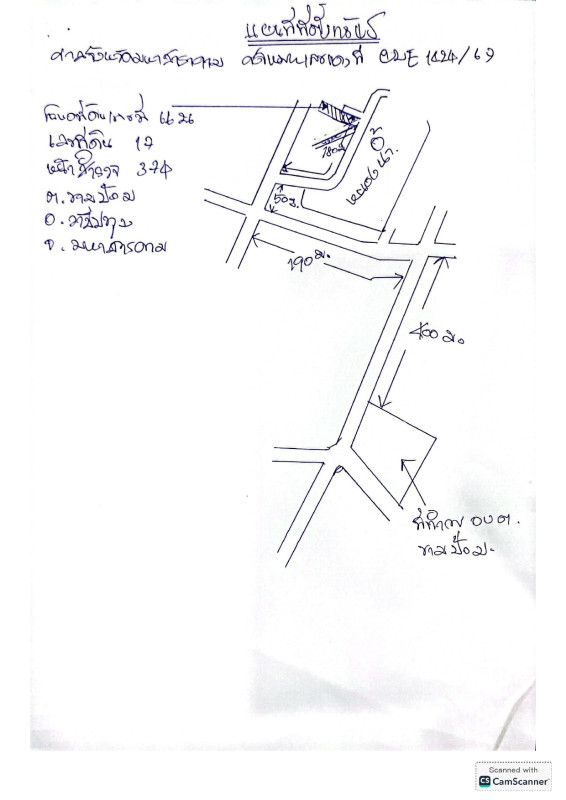 แผนที่ที่ตั้งทรัพย์
ศาลจังหวัดมหาสารคาม คดีหมายเลขแดงที่ ผบE 1424/67
โฉนดที่ดินเลขที่
เลขที่ดิน 17
หน้าสำรวจ 374
ต.ขามป้อม
อ.วาปีปทุม
จ.มหาสารคาม
180ม.
50ม.
หนองน้ำ
190 ม.
400 ม.
ที่ทำการ อบต.
ขามป้อม.
Scanned with
CS CamScanner